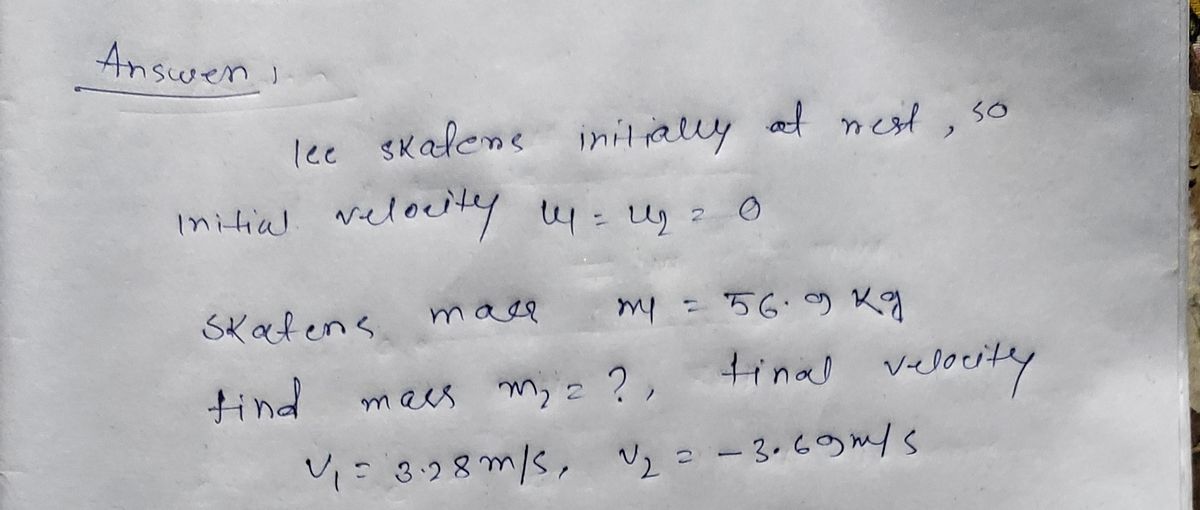 Answer :
Ice skaters initially at rest, so
initial velocity u1 = u2 = 0
Skaters mass m1 = 56.9 kg
find mass m2 = ?, final velocity
V1 = 3.28 m/s, V2 = -3.69 m/s